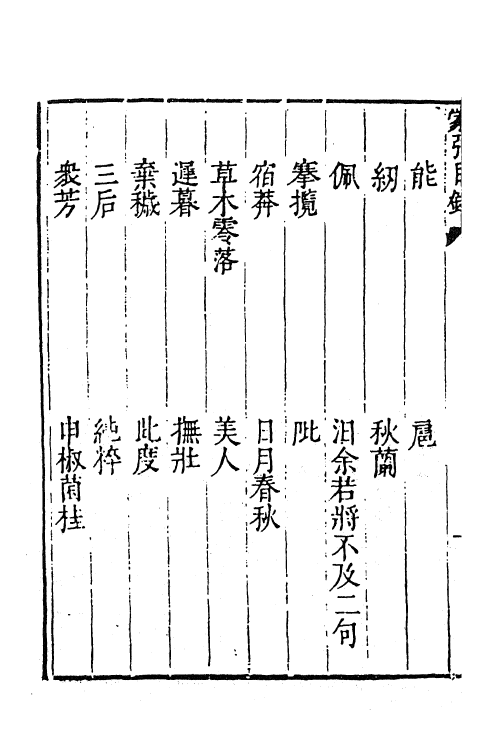 能　扈
紉　秋蘭
佩　汩余若將不及二句
搴攬　阰
宿莽　日月春秋
草木零落　美人
遲暮　撫壯
棄穢　此度
三后　純粹
衆芳　申椒菌桂